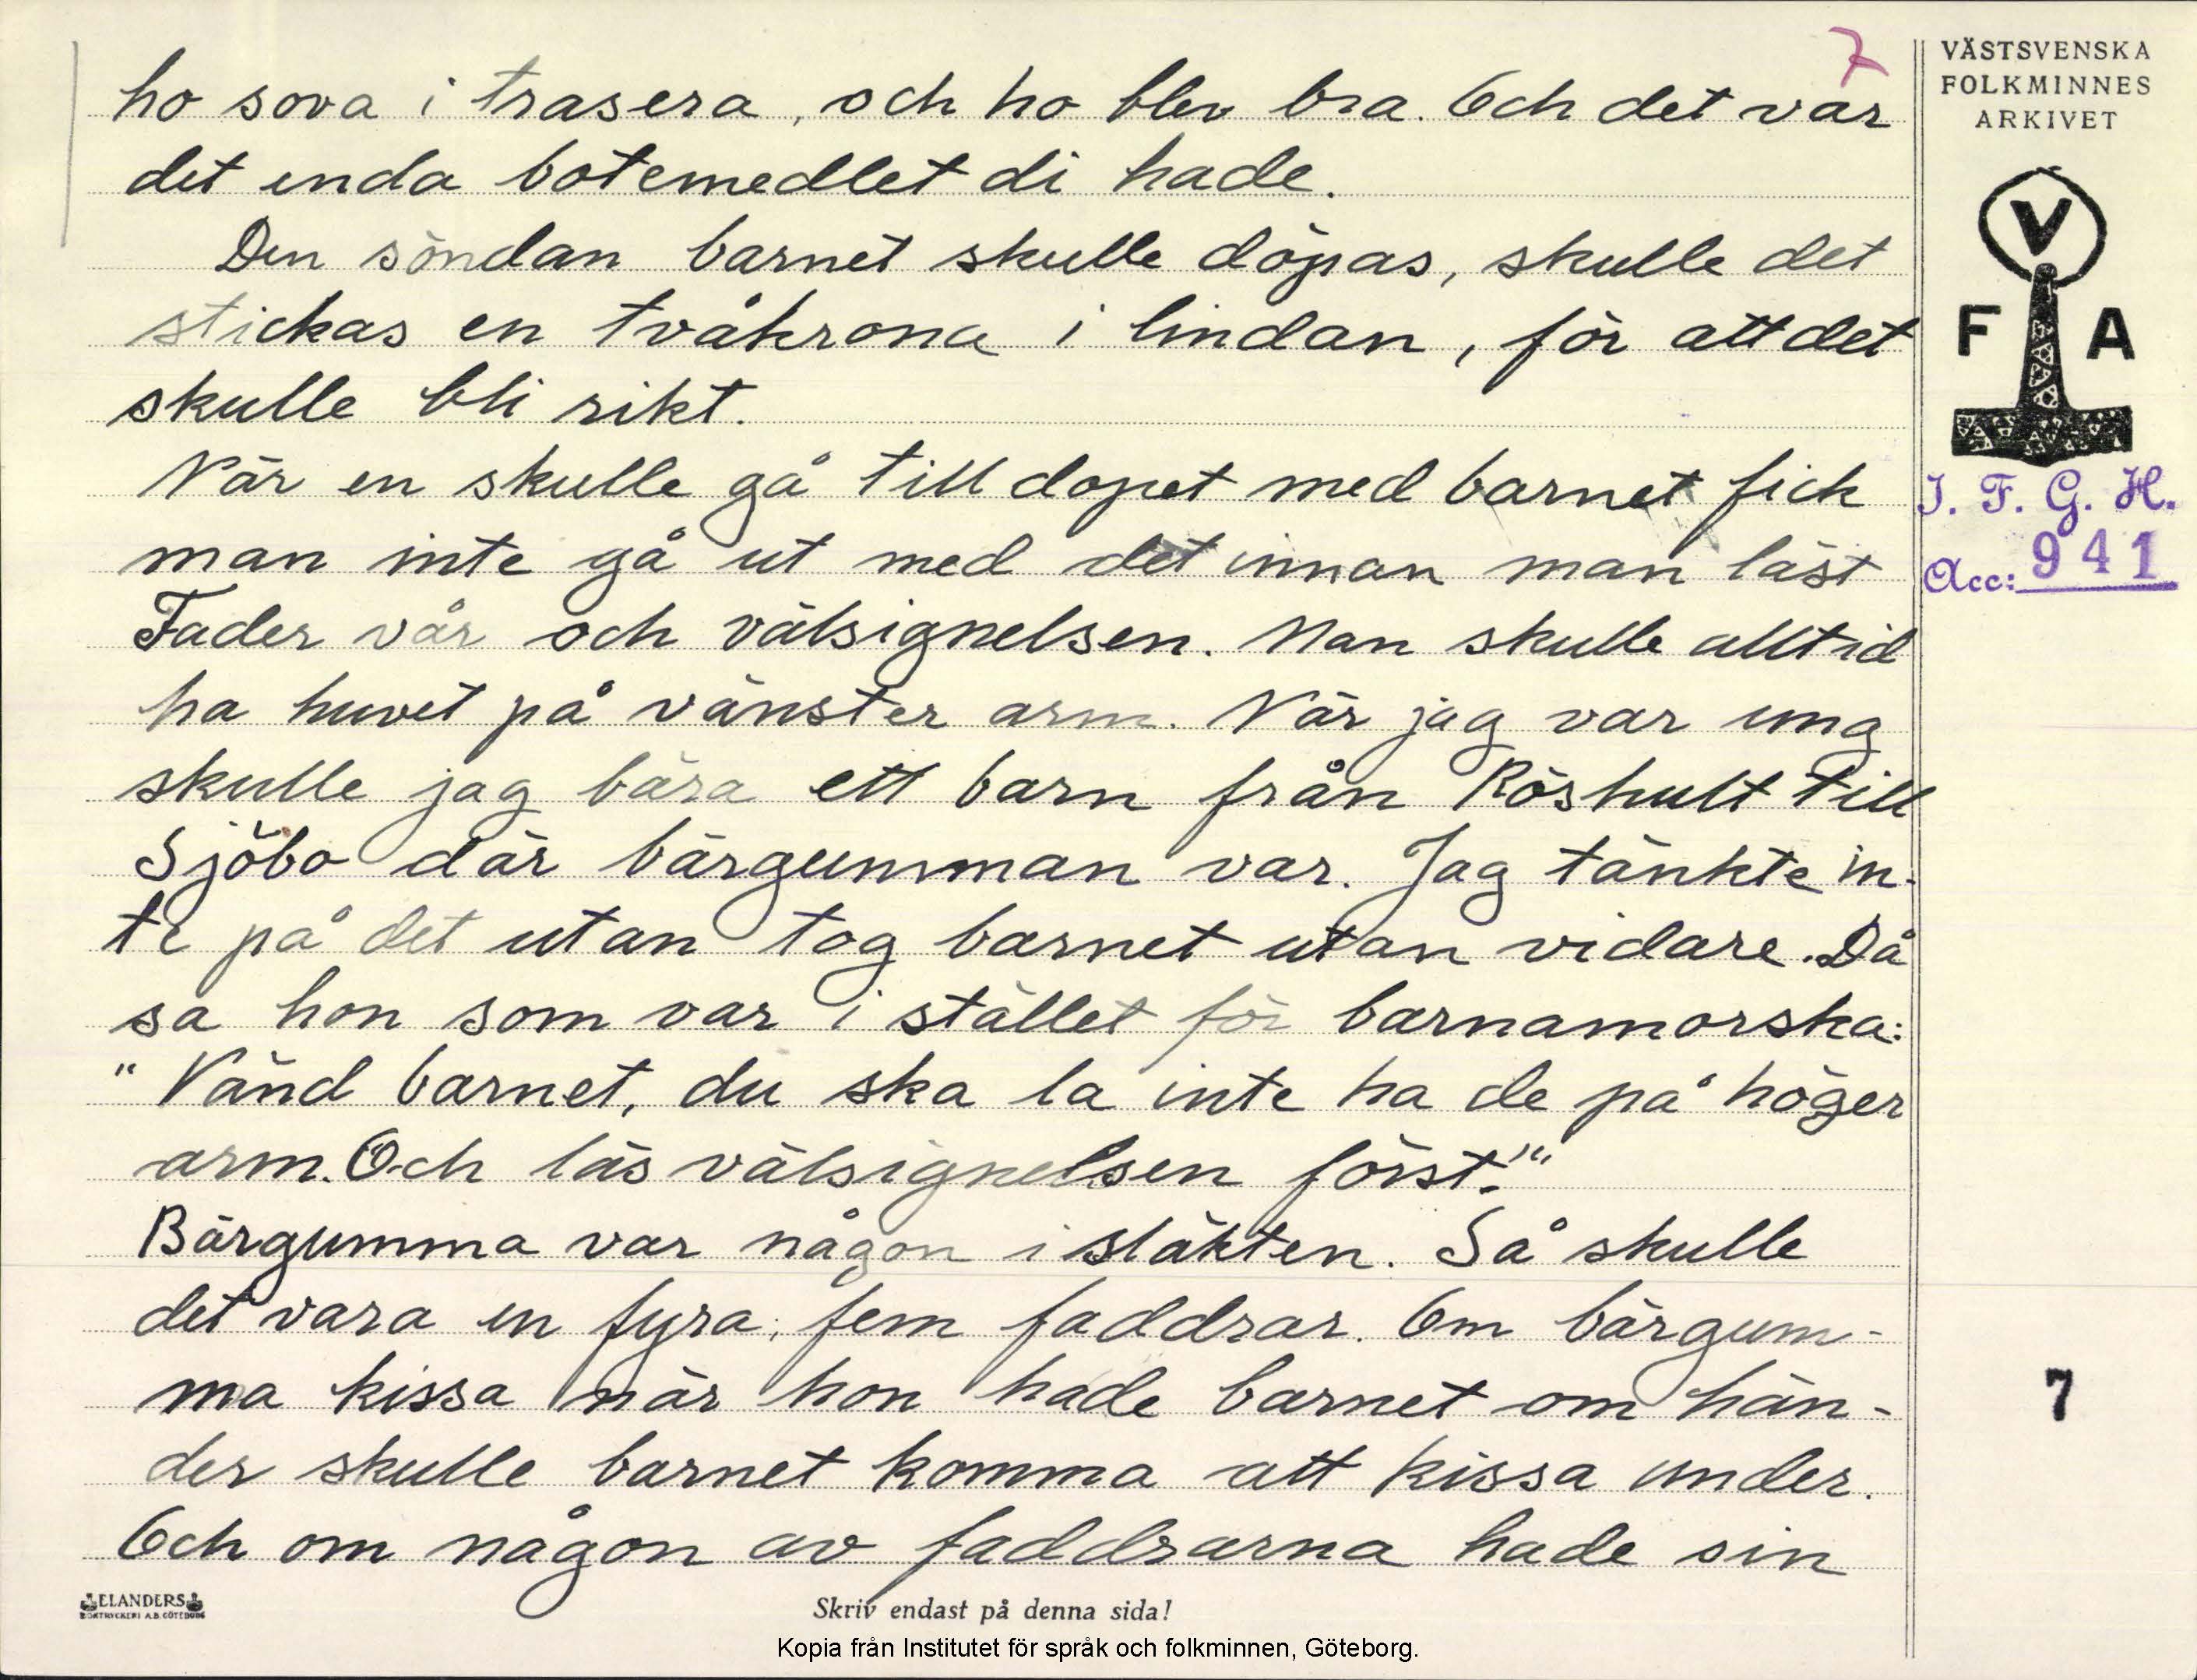 7
ho sova i trasera, och ho blev bra. Och det var
det enda botemedlet di hade.
Den söndan barnet skulle döpas, skulle det
stickas en tvåkrona i lindan, för att det
skulle bli rikt.
När en skulle gå till dopet med barnet fick
man inte gå ut med det innan man läst
Fader vår och välsignelsen. Man skulle alltid
ha huvet på vänster arm. När jag var ung
skulle jag bära ett barn från Röshult till
Sjöbo där bärgumman var. Jag tänkte in-
te på det utan tog barnet utan vidare. Då
sa hon som var i stället för barnamorska:
"Vänd barnet, du ska la inte ha de på höger
arm. Och läs välsignelsen först!"
Bärgumma var någon i släkten. Så skulle
det vara en fyra, fem faddrar. Om bärgum-
ma kissa när hon hade barnet om hän-
der skulle barnet komma att kissa under.
Och om någon av faddrarna hade sin
VÄSTSVENSKA
FOLKMINNES
ARKIVET
V
F A
I. F. G. H.
Acc: 941
7
ELANDERS
BOKTRYCKERI A.B. GÖTEBORG
Skriv endast på denna sida!
Kopia från Institutet för språk och folkminnen, Göteborg.